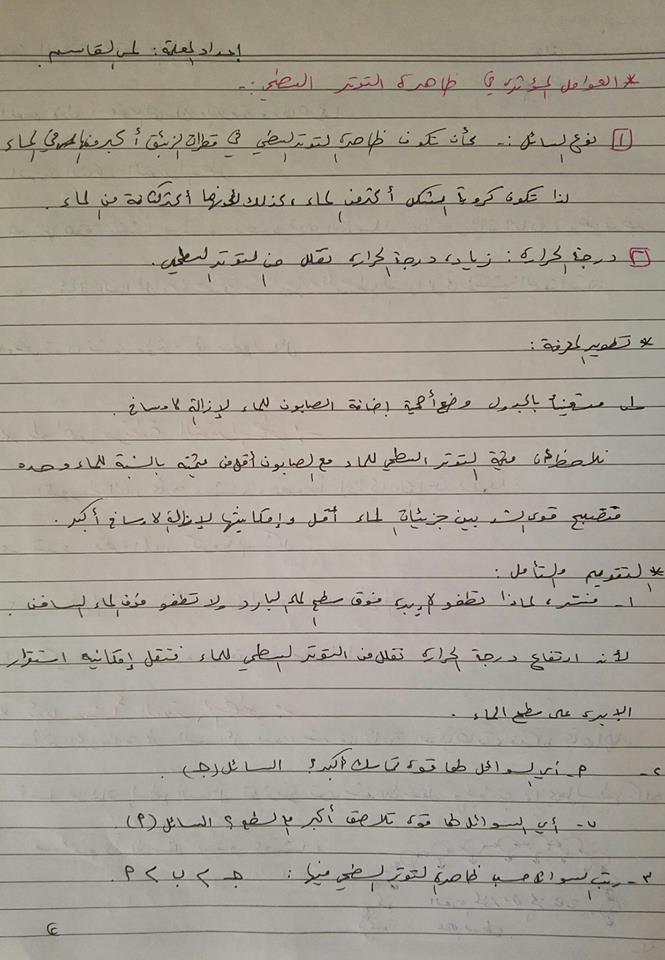 إعداد المعلمة: لمى القاسم
* العوامل المؤثرة في ظاهرة التوتر السطحي:-
١ نوع السائل:- كأن تكون ظاهرة التوتر السطحي في قطرات الزئبق أكبر منها في الماء
لذا تكون كروية الشكل أكثر من الماء، كذلك لكونها أكثر كثافة من الماء.
٢ درجة الحرارة: زيادة درجة الحرارة تقلل من التوتر السطحي.
* تطوير المعرفة:
مستعيناً بالجدول وضح أهمية إضافة الصابون للماء لإزالة الأوساخ.
نلاحظ أن قيمة التوتر السطحي للماء مع الصابون أقل من قيمته بالنسبة للماء وحده
فتصبح قوى الشد بين جزيئات الماء أقل وإمكانيتها لإزالة الأوساخ أكبر.
* التقويم والتأمل:
١- فسّر، لماذا تطفو الإبرة فوق سطح الماء البارد ولا تطفو فوق الماء الساخن.
لأنه ارتفاع درجة الحرارة تقلل من التوتر السطحي للماء فتقل إمكانية استقرار
الإبرة على سطح الماء.
٢- أ- أي السوائل لها قوة تماسك أكبر؟ السائل (جـ).
ب- أي السوائل لها قوة تلاصق أكبر مع السطح؟ السائل (أ).
٣- رتب السوائل حسب ظاهرة التوتر السطحي فيها: جـ > ب > أ.
٤